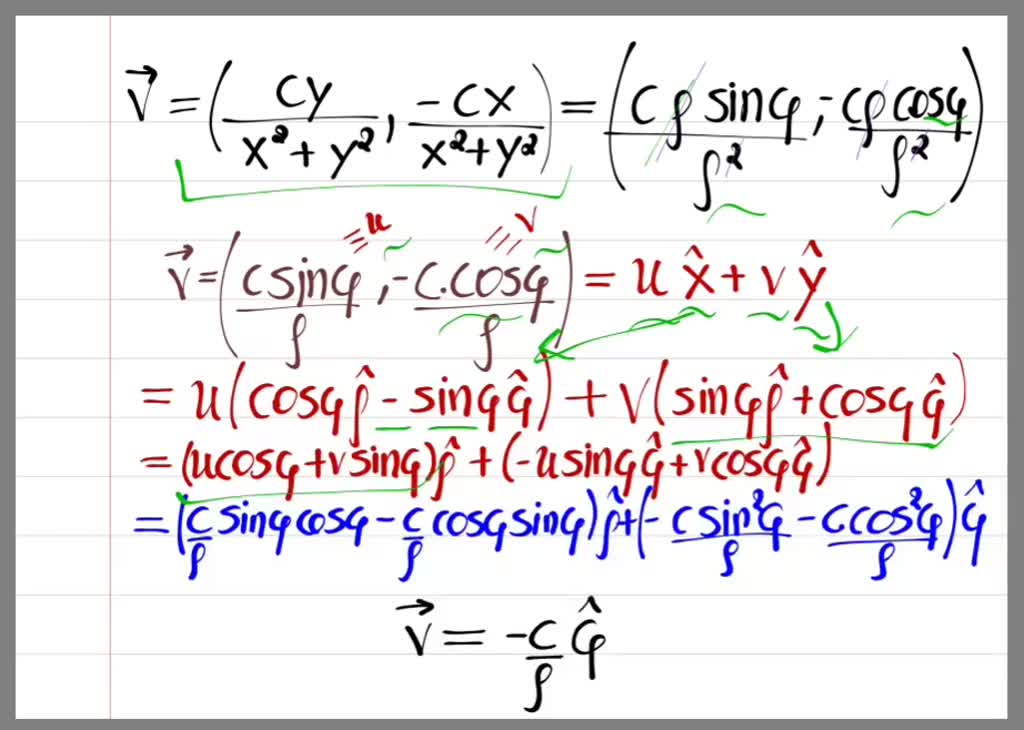 V⃗ = (CY / (X² + Y²), -CX / (X² + Y²)) = (Cρ sinφ / ρ², -Cρ cosφ / ρ²)
=u =V
V⃗ = (C sinφ / ρ, -C·cosφ / ρ) = u x̂ + v ŷ
= u(cosφ ρ̂ - sinφ φ̂) + V(sinφ ρ̂ + cosφ φ̂)
= (u cosφ + v sinφ)ρ̂ + (-u sinφ φ̂ + v cosφ φ̂)
= (C/ρ sinφ cosφ - C/ρ cosφ sinφ)ρ̂ + (-C sin²φ / ρ - C cos²φ / ρ)φ̂
V⃗ = -C/ρ φ̂